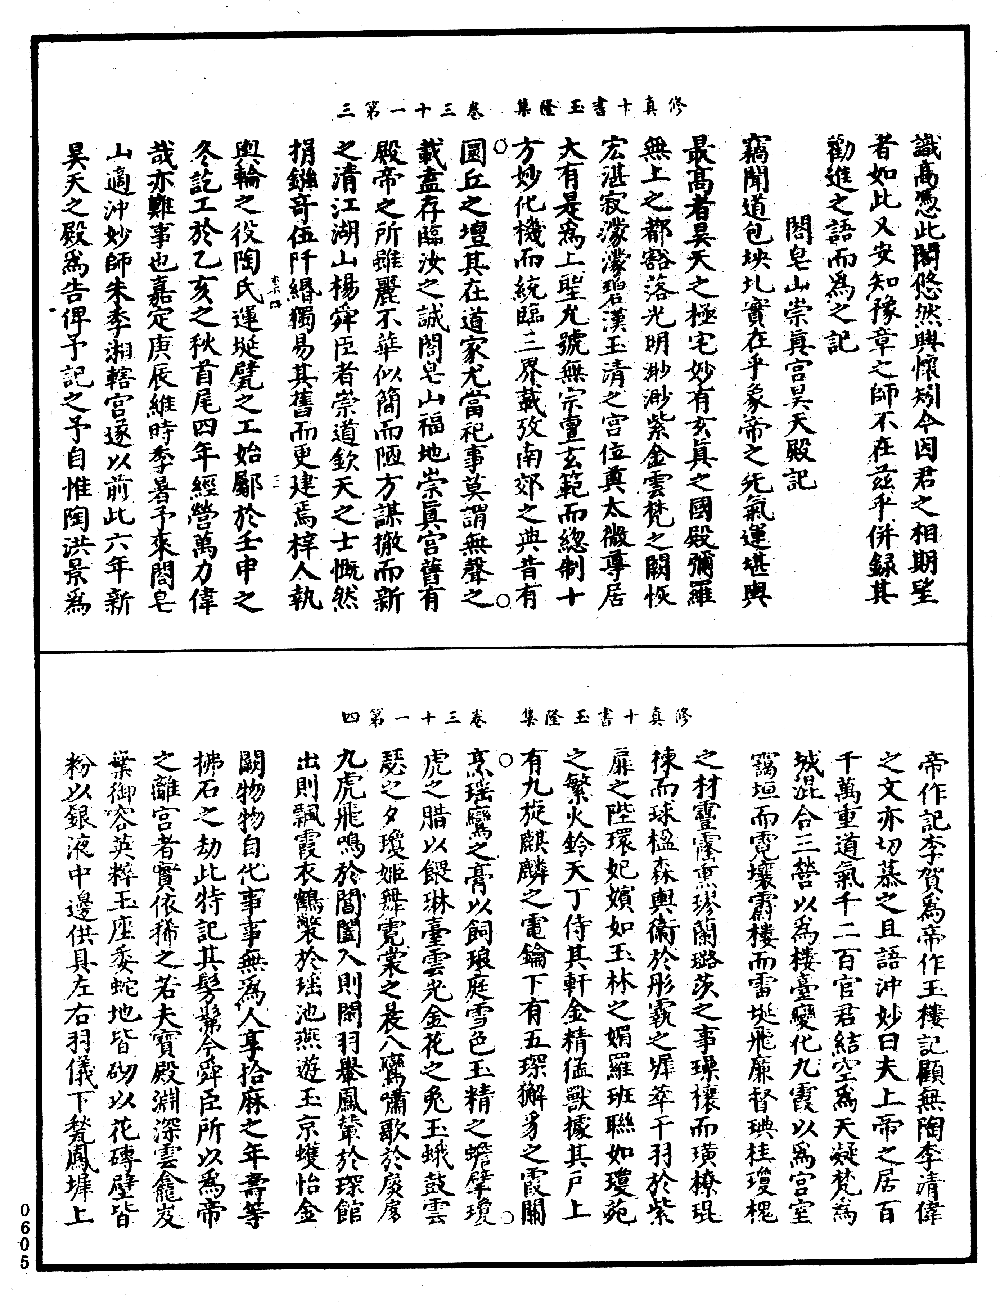 修真十書玉隆集　卷三十一第三
識高憑此閣悠然興懷矧今因君之相期望
者如此又安知豫章之師不在茲乎併録其
勸進之語而爲之記
閤皂山崇真宫昊天殿記
竊聞道包坱圠實在乎象帝之先氣運堪輿
最髙者昊天之極宅妙有玄真之國殿彌羅
無上之都豁落光明渺渺紫金雲梵之闕恢
宏湛寂濛濛碧漢玉清之宫位奠太微尊居
大有是爲上聖尤號無宗亶玄範而緫制十
方妙化機而統臨三界載攷南郊之典昔有
圜丘之壇其在道家尤當祀事莫謂無聲之
載盍存臨汝之誠閤皂山福地崇真宫舊有
殿帝之所雖麗不華似簡而陋方謀撤而新
之清江湖山楊舜臣者崇道欽天之士慨然
捐鏹哥伍阡緡獨易其舊而更建焉梓人執
輿輪之役陶氏運埏甓之工始鄳於壬申之
冬訖工於乙亥之秋首尾四年經營萬力偉
哉亦難事也嘉定庚辰維時季暑予來閤皂
山適沖妙師朱季湘轄宫遂以前此六年新
昊天之殿爲告俾予記之予自惟陶洪景爲
修真十書玉隆集　卷三十一第四
帝作記李賀爲帝作玉樓記顧無陶李清偉
之文亦切慕之且語沖妙曰夫上帝之居百
千萬重道氣千二百官君結空爲天凝梵爲
城混合三營以爲樓臺變化九霞以爲宫室
靄垣而霓壤霨樓而雷埏飛廉督琠桂瓊棍
之材靈霳熏璆蘭璐茨之事璪欀而璜橑琨
棟而球楹森輿衛於彤霸之墀萃千羽於紫
扉之陛環妃嬪如玉林之媚羅班聯如瓊苑
之繁火鈴天丁侍其軒金精猛獸據其戸上
有九旋麒麟之電鑰下有五琛獬豸之霞關
烹瑶鸞之膏以飼琅庭雪色玉精之蟾擘瓊
虎之腊以餵琳臺雲光金花之兎玉蛾鼓雲
瑟之夕瓊姬舞霓裳之晨八鸞嘯歌於廣庭
九虎飛鳴於閶闔入則閤羽舉鳳輦於琛館
出則飄霞衣鶴氅於瑶池燕遊玉京䕶怡金
闕物物自化事事無爲人享拾麻之年壽等
拂石之劫此特記其髣髴今舜臣所以爲帝
之離宫者實依稀之若夫寳殿淵深雲龕岌
業御容英粹玉座委蛇地皆砌以花磚壁皆
粉以銀液中邊供具左右羽儀下甃鳳墀上
0605